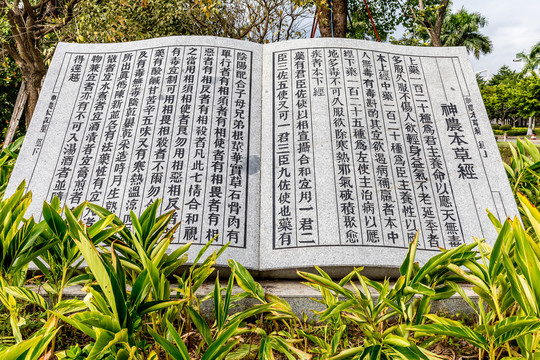 神農本草經
上藥一百二十種為君主養命以應天無毒
多服久服不傷人欲輕身益氣不老延年者
本上經中藥一百二十種為臣主養性以應
人無毒有毒斟酌其宜欲遏病補羸者本中
經下藥一百二十五種為左使主治病以應
地多毒不可久服欲除寒熱邪氣破積聚愈
疾者本下經
藥有君臣佐使以相宣攝合和宜用一君二
臣三佐五使又可一君三臣九佐使也藥有
陰陽配合子母兄弟根莖華實草石骨肉有
單行者有相須者有相使者有相畏者有相
惡者有相反者有相殺者凡此七情合和視
之當用相須相使者良勿用相惡相反
有毒宜制可用相畏相殺者不爾勿合
藥有酸鹹甘苦辛五味又有寒熱溫涼
及有毒無毒陰乾暴乾采造時月生熟
所出真偽陳新並各有法藥性有
散者宜水煮者宜酒漬者宜膏煎者
物兼宜者亦有不可入湯酒者並
得違越